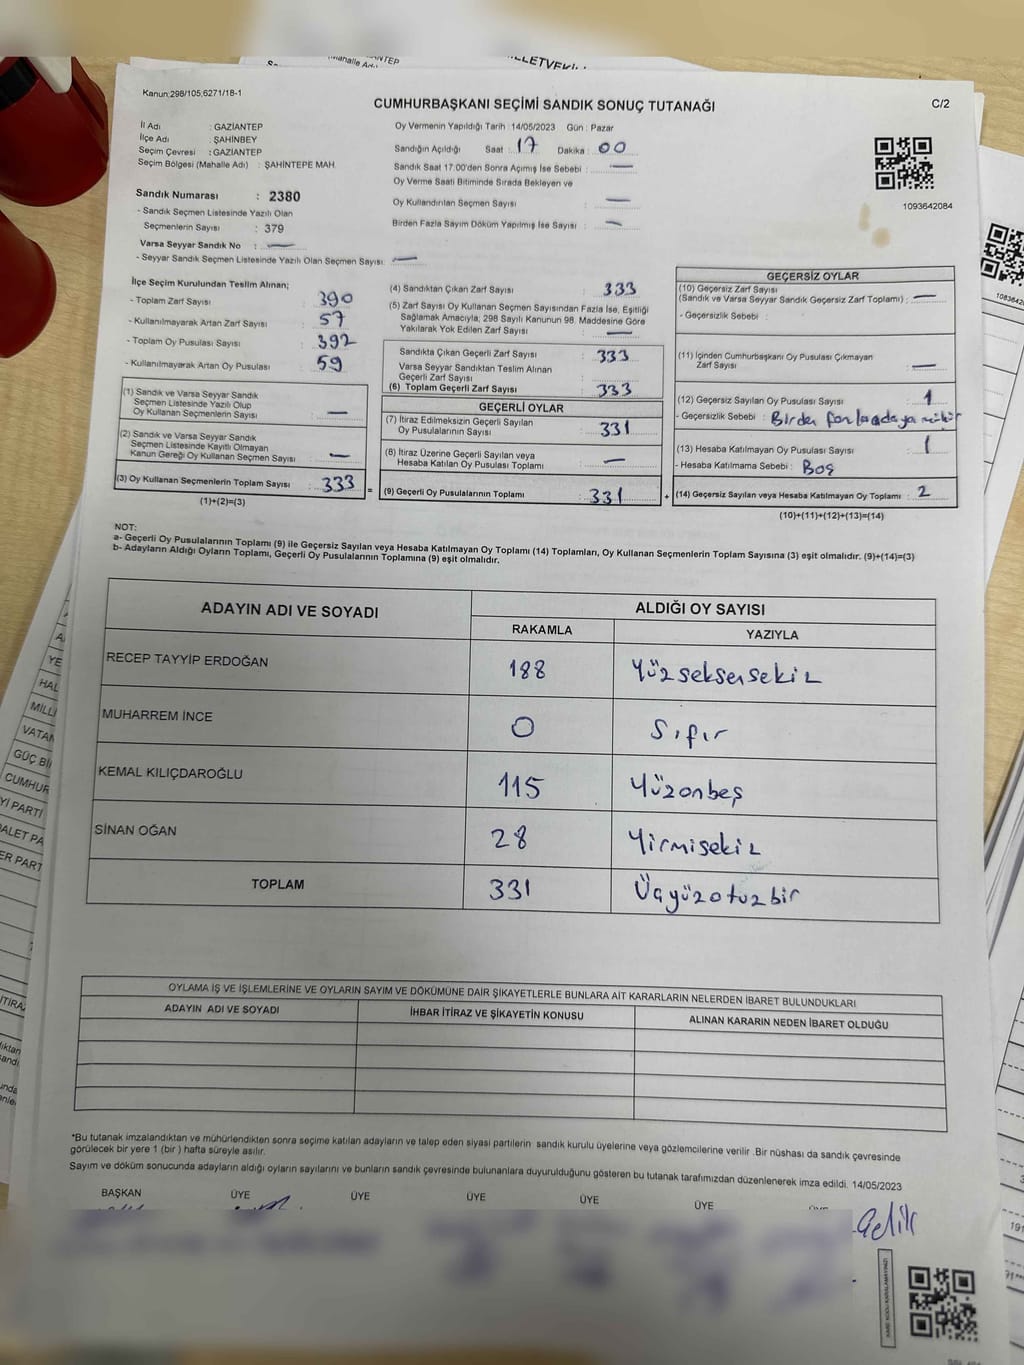 Kanun;298/105,6271/18-1
CUMHURBAŞKANI SEÇİMİ SANDIK SONUÇ TUTANAĞI
C/2
İl Adı : GAZİANTEP
İlçe Adı : ŞAHİNBEY
Seçim Çevresi : GAZİANTEP
Seçim Bölgesi (Mahalle Adı) : ŞAHİNTEPE MAH.
Sandık Numarası : 2380
- Sandık Seçmen Listesinde Yazılı Olan
Seçmenlerin Sayısı : 379
Varsa Seyyar Sandık No : —
- Seyyar Sandık Seçmen Listesinde Yazılı Olan Seçmen Sayısı: —
Oy Vermenin Yapıldığı Tarih : 14/05/2023 Gün : Pazar
Sandığın Açıldığı Saat : 17 Dakika : 00
Sandık Saat 17.00'den Sonra Açımış İse Sebebi : —
Oy Verme Saati Bitiminde Sırada Bekleyen ve
Oy Kullandırılan Seçmen Sayısı : —
Birden Fazla Sayım Döküm Yapılmış İse Sayısı : —
1093642084
İlçe Seçim Kurulundan Teslim Alınan;
- Toplam Zarf Sayısı : 390
- Kullanılmayarak Artan Zarf Sayısı : 57
- Toplam Oy Pusulası Sayısı : 392
- Kullanılmayarak Artan Oy Pusulası : 59
(1) Sandık ve Varsa Seyyar Sandık
Seçmen Listesinde Yazılı Olup
Oy Kullanan Seçmenlerin Sayısı : —
(2) Sandık ve Varsa Seyyar Sandık
Seçmen Listesinde Kayıtlı Olmayan
Kanun Gereği Oy Kullanan Seçmen Sayısı : —
(3) Oy Kullanan Seçmenlerin Toplam Sayısı : 333
(1)+(2)=(3)
(4) Sandıktan Çıkan Zarf Sayısı : 333
(5) Zarf Sayısı Oy Kullanan Seçmen Sayısından Fazla İse, Eşitliği
Sağlamak Amacıyla; 298 Sayılı Kanunun 98. Maddesine Göre
Yakılarak Yok Edilen Zarf Sayısı : —
Sandıkta Çıkan Geçerli Zarf Sayısı : 333
Varsa Seyyar Sandıktan Teslim Alınan
Geçerli Zarf Sayısı :
(6) Toplam Geçerli Zarf Sayısı : 333
GEÇERLİ OYLAR
(7) İtiraz Edilmeksizin Geçerli Sayılan
Oy Pusulalarının Sayısı : 331
(8) İtiraz Üzerine Geçerli Sayılan veya
Hesaba Katılan Oy Pusulası Toplamı : —
= (9) Geçerli Oy Pusulalarının Toplamı : 331 +
GEÇERSİZ OYLAR
(10) Geçersiz Zarf Sayısı
(Sandık ve Varsa Seyyar Sandık Geçersiz Zarf Toplamı) : —
- Geçersizlik Sebebi :
(11) İçinden Cumhurbaşkanı Oy Pusulası Çıkmayan
Zarf Sayısı : —
(12) Geçersiz Sayılan Oy Pusulası Sayısı : 1
- Geçersizlik Sebebi : Birden
(13) Hesaba Katılmayan Oy Pusulası Sayısı : 1
- Hesaba Katılmama Sebebi : Boş
(14) Geçersiz Sayılan veya Hesaba Katılmayan Oy Toplamı : 2
(10)+(11)+(12)+(13)=(14)
NOT:
a- Geçerli Oy Pusulalarının Toplamı (9) ile Geçersiz Sayılan veya Hesaba Katılmayan Oy Toplamı (14) Toplamları, Oy Kullanan Seçmenlerin Toplam Sayısına (3) eşit olmalıdır. (9)+(14)=(3)
b- Adayların Aldığı Oyların Toplamı, Geçerli Oy Pusulalarının Toplamına (9) eşit olmalıdır.
ADAYIN ADI VE SOYADI ALDIĞI OY SAYISI
RAKAMLA YAZIYLA
RECEP TAYYİP ERDOĞAN 188 Yüzseksensekiz
MUHARREM İNCE 0 Sıfır
KEMAL KILIÇDAROĞLU 115 Yüzonbeş
SİNAN OĞAN 28 Yirmisekiz
TOPLAM 331 Üçyüzotuzbir
OYLAMA İŞ VE İŞLEMLERİNE VE OYLARIN SAYIM VE DÖKÜMÜNE DAİR ŞİKAYETLERLE BUNLARA AİT KARARLARIN NELERDEN İBARET BULUNDUKLARI
ADAYIN ADI VE SOYADI İHBAR İTİRAZ VE ŞİKAYETİN KONUSU ALINAN KARARIN NEDEN İBARET OLDUĞU
*Bu tutanak imzalandıktan ve mühürlendikten sonra seçime katılan adayların ve talep eden siyasi partilerin sandık kurulu üyelerine veya gözlemcilerine verilir .Bir nüshası da sandık çevresinde
görülecek bir yere 1 (bir ) hafta süreyle asılır.
Sayım ve döküm sonucunda adayların aldığı oyların sayılarını ve bunların sandık çevresinde bulunanlara duyurulduğunu gösteren bu tutanak tarafımızdan düzenlenerek imza edildi. 14/05/2023
BAŞKAN ÜYE ÜYE ÜYE ÜYE ÜYE